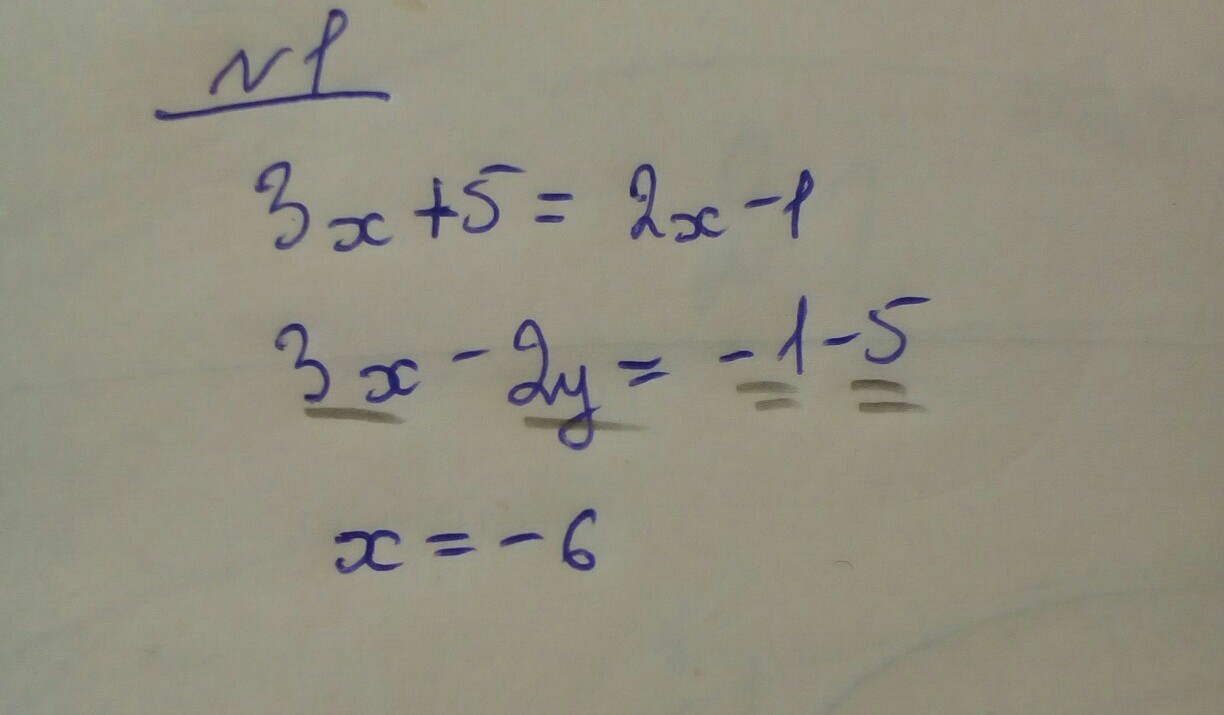 N1
3x+5=2x-1
3x-2y=-1-5
x=-6